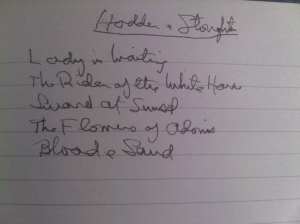 Hodder & Stoughton
Lady in Waiting
The Rider of the White Horse
Sword at Sunset
The Flowers of Adonis
Blood & Sand